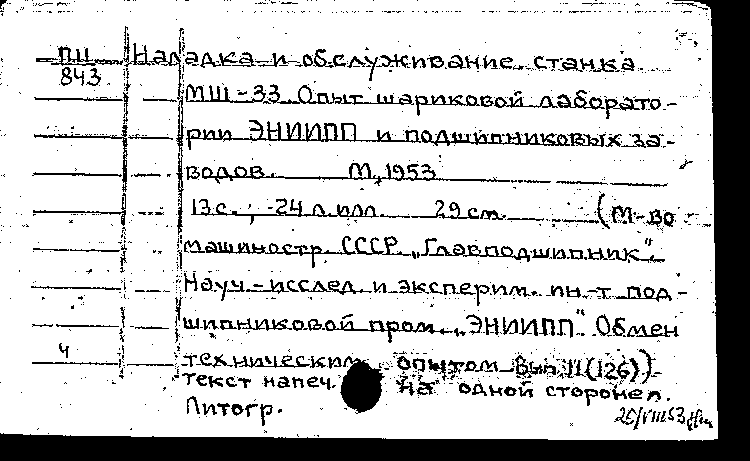 ПЦ Наладка и обслуживание станка
843
МШ-33. Опыт шариковой лаборато-
рии ЭНИИПП и подшипниковых за-
водов. М, 1953
13 с.; 24 л. илл. 29 см. (М-во
машиностр. СССР. „Главподшипник".
Науч.-исслед. и эксперим. ин-т под-
шипниковой пром. „ЭНИИПП". Обмен
техническим опытом. Вып. 11(126))
Ч
Текст напеч. на одной сторонел.
Литогр.